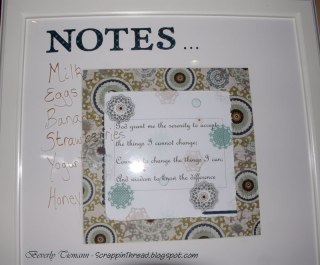 NOTES...
Milk
Eggs
Bana
Strawberries
Yogur
Honey
God grant me the serenity to accept
the things I cannot change;
Courage to change the things I can;
And wisdom to know the difference
Beverly Tiemann - Scrappin1kread.blogspot.com